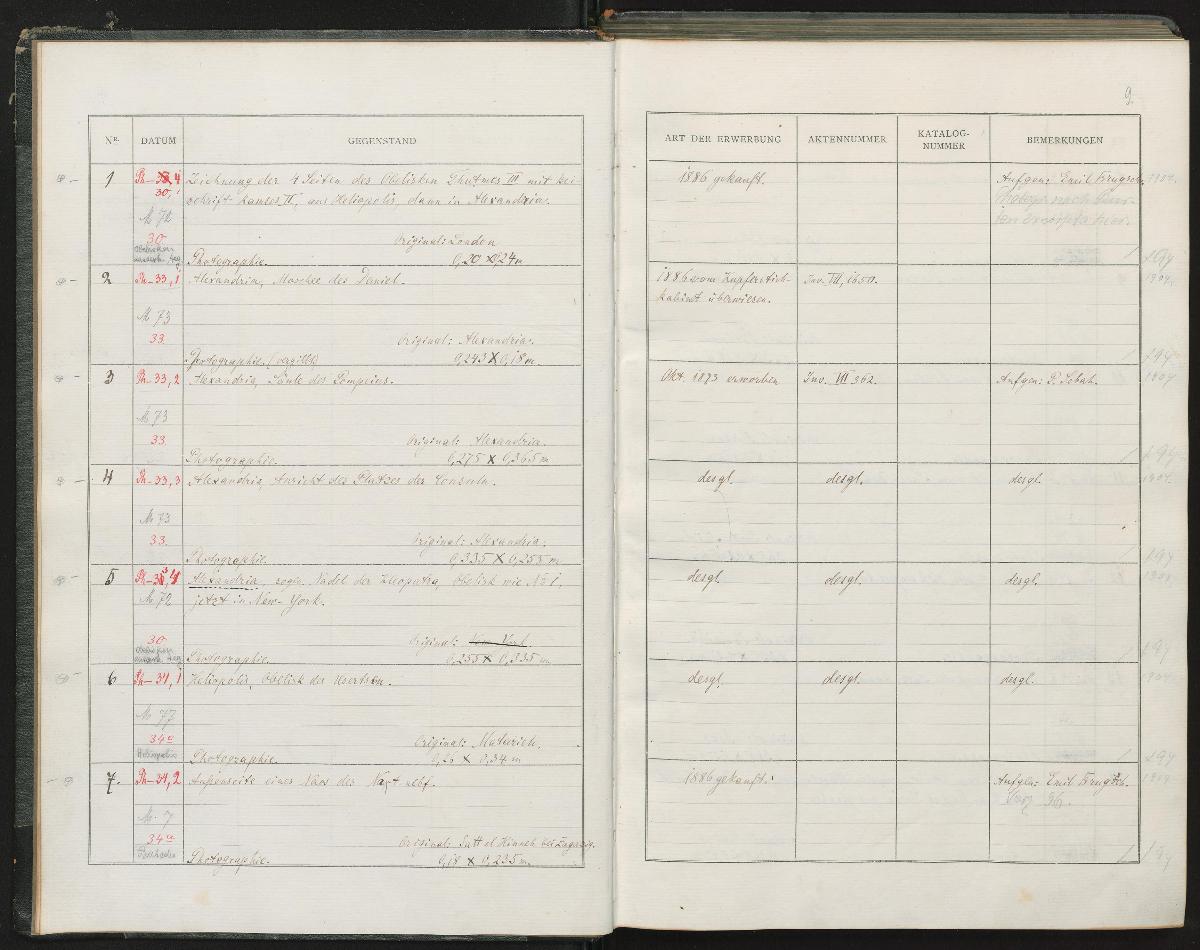 9.
Nr. DATUM GEGENSTAND
ART DER ERWERBUNG AKTENNUMMER KATALOG-NUMMER BEMERKUNGEN
1 Zeichnung der 4 Seiten des Obelisken Thutmes III mit Bei-
schrift Ramses II, aus Heliopolis, dann in Alexandria.
M 72
30
Original: London
Photographie. 0,20 X 0,24 m
1886 gekauft. Aufgen: Emil Brugsch. 1904.
2 Ph-33,1 Alexandria, Moschee des Daniel.
M 73
33
Original: Alexandria.
Photographie. (vergilbt) 0,243 X 0,18 m
1886 vom Kupferstich- Inv. VII, 1650. 1904.
kabinet überwiesen.
3 Ph-33,2 Alexandria, Säule des Pompeius.
M 73
33
Original: Alexandria.
Photographie. 0,275 X 0,365 m
Okt. 1873 erworben Inv. VII 362. Aufgen: P. Sebah. 1904
4 Ph-33,3 Alexandria, Ansicht des Platzes der Consuln.
M 73
33.
Original: Alexandria.
Photographie. 0,335 X 0,255 m
desgl. desgl. desgl. 1904.
5 Alexandria, sogen. Nadel der Kleopatra, Obelisk wie No 1,
M 72 jetzt in New-York.
30
Original: New York.
Photographie. 0,255 X 0,335 m
desgl. desgl. desgl.
6 Ph-34,1 Heliopolis, Obelisk des Usertsen.
M 77
34a
Heliopolis
Original: Matarieh.
Photographie. 0,26 X 0,34 m
desgl. desgl. desgl. 1904
7. Ph-34,2 Außenseite eines Naos des
M. 7
34a
Original: bei Zagazig.
Photographie. 0,18 X 0,235 m
1886 gekauft. Aufgen: Emil Brugsch.